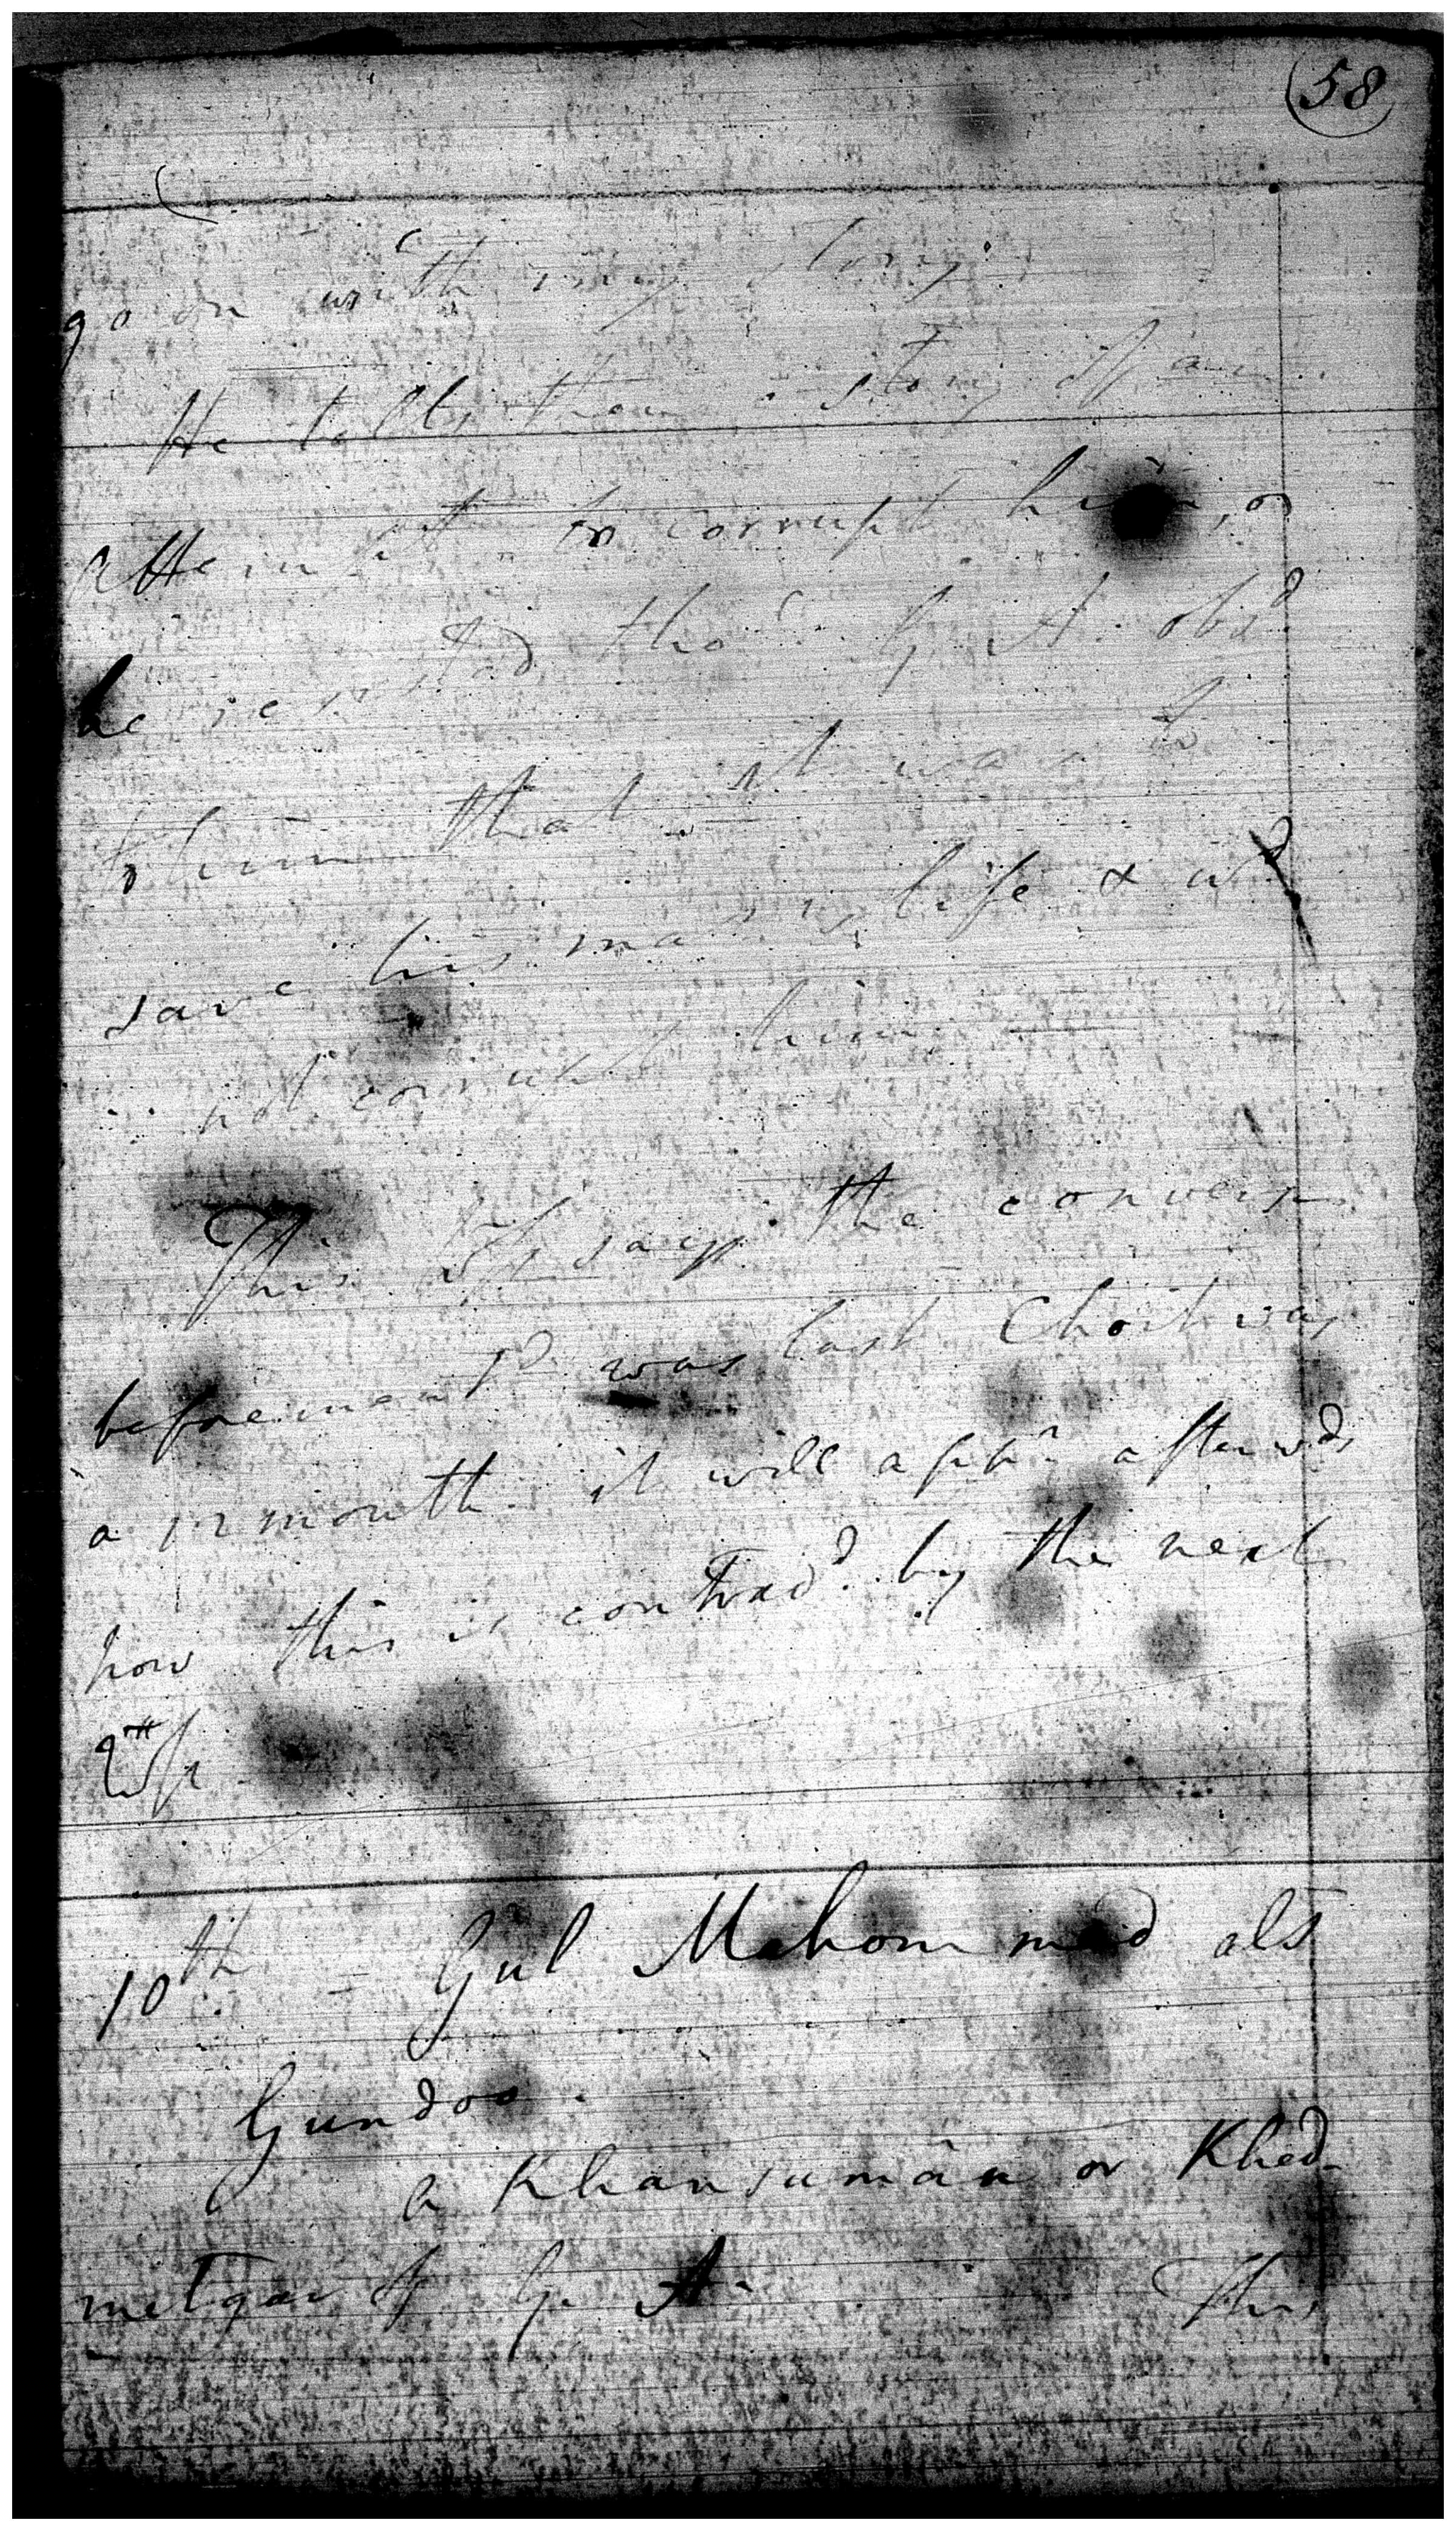 58
go on with my story.
He tells them a story of an
attempt to corrupt him, or
he resisted tho' G. A. obsd
to him that it was to
save his man's life & wd
not corrupt him.
This W says the convers
beforementd was last Choitwas
a 12 month it will appr afterwds
how this is contradd by the next
Ws
10th Gul Mahommed als
Gundoo.
a Khansumân or Khed-
metgar of G. A. This